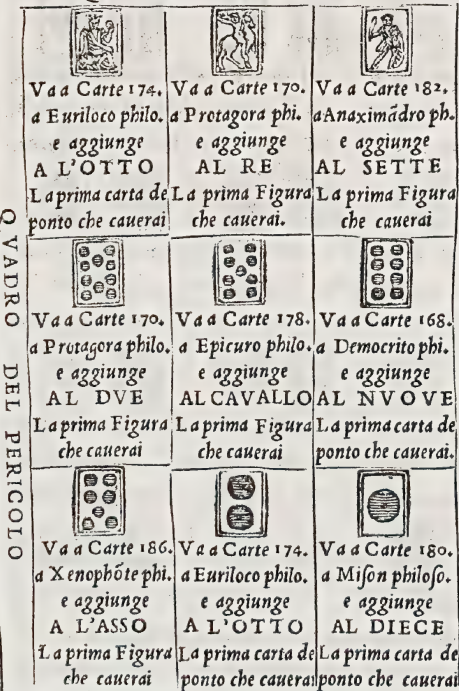 QVADRO DEL PERICOLO
Va a Carte 174.
a Euriloco philo.
e aggiunge
A L'OTTO
La prima carta de
ponto che cauerai
Va a Carte 170.
a Protagora phi.
e aggiunge
AL RE
La prima Figura
che cauerai.
Va a Carte 182.
a Anaximãdro ph.
e aggiunge
AL SETTE
La prima Figura
che cauerai
Va a Carte 170.
a Protagora philo.
e aggiunge
AL DVE
La prima Figura
che cauerai
Va a Carte 178.
a Epicuro philo.
e aggiunge
AL CAVALLO
La prima Figura
che cauerai
Va a Carte 168.
a Democrito phi.
e aggiunge
AL NVOVE
La prima carta de
ponto che cauerai.
Va a Carte 186.
a Xenophõte phi.
e aggiunge
A L'ASSO
La prima Figura
che cauerai
Va a Carte 174.
a Euriloco philo.
e aggiunge
A L'OTTO
La prima carta de
ponto che cauerai
Va a Carte 180.
a Mison philoso.
e aggiunge
AL DIECE
La prima carta de
ponto che cauerai